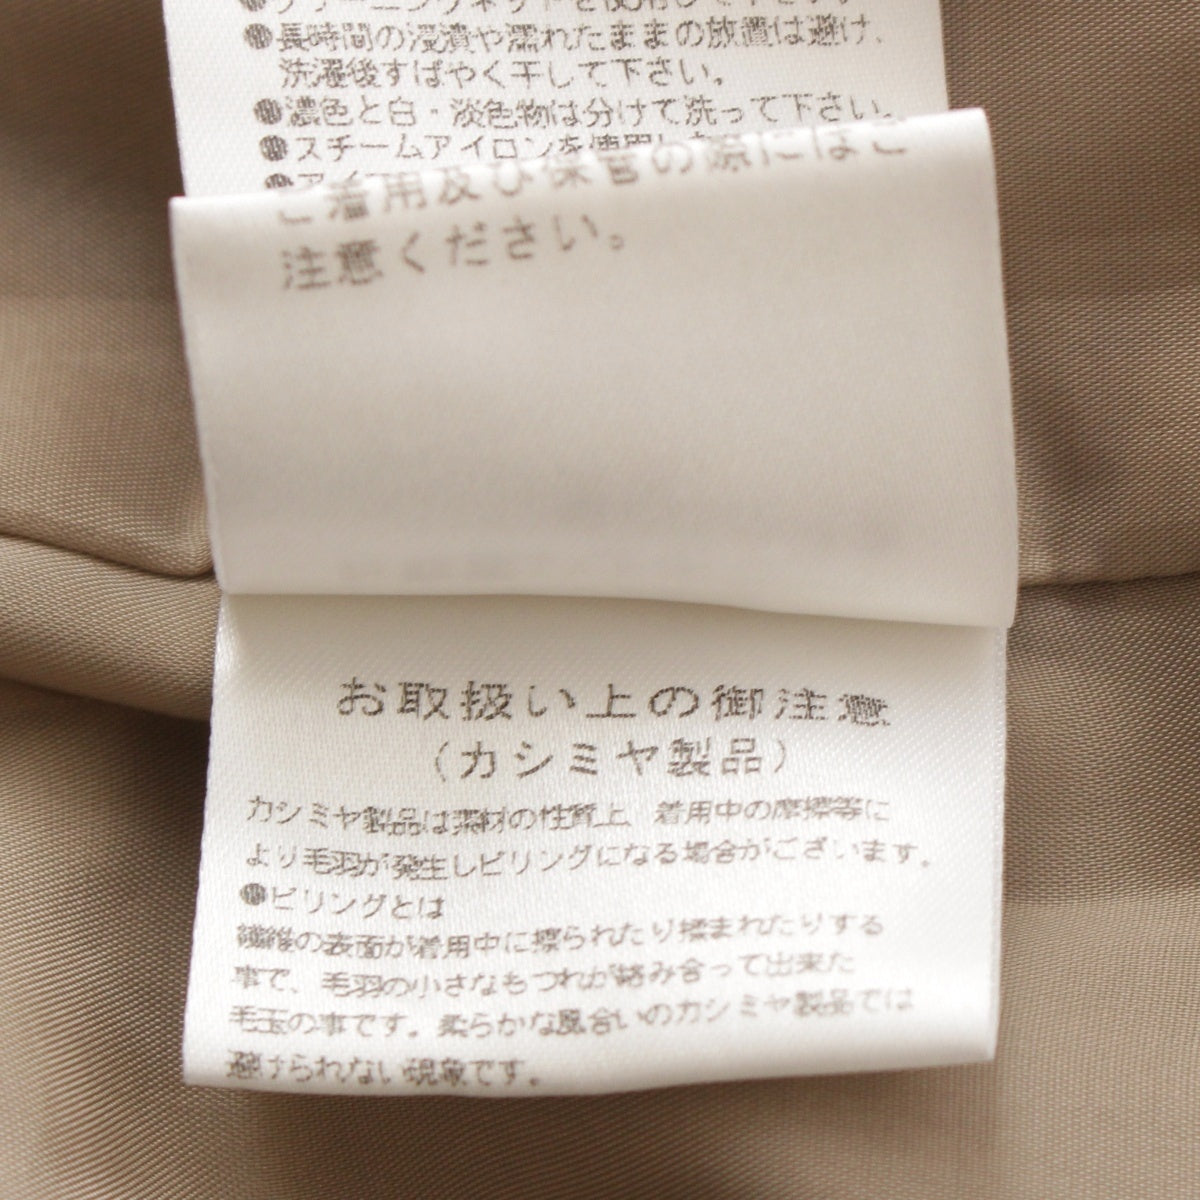 クリーニングネットを使用して下さい。
●長時間の浸漬や濡れたままの放置は避け、
洗濯後すばやく干して下さい。
●濃色と白・淡色物は分けて洗って下さい。
●スチームアイロンを使用
ご着用及び保管の際にはご
注意ください。
お取扱い上の御注意
（カシミヤ製品）
カシミヤ製品は素材の性質上、着用中の摩擦等に
より毛羽が発生しピリングになる場合がございます。
●ピリングとは
繊維の表面が着用中に擦られたり揉まれたりする
事で、毛羽の小さなもつれが絡み合って出来た
毛玉の事です。柔らかな風合いのカシミヤ製品では
避けられない現象です。